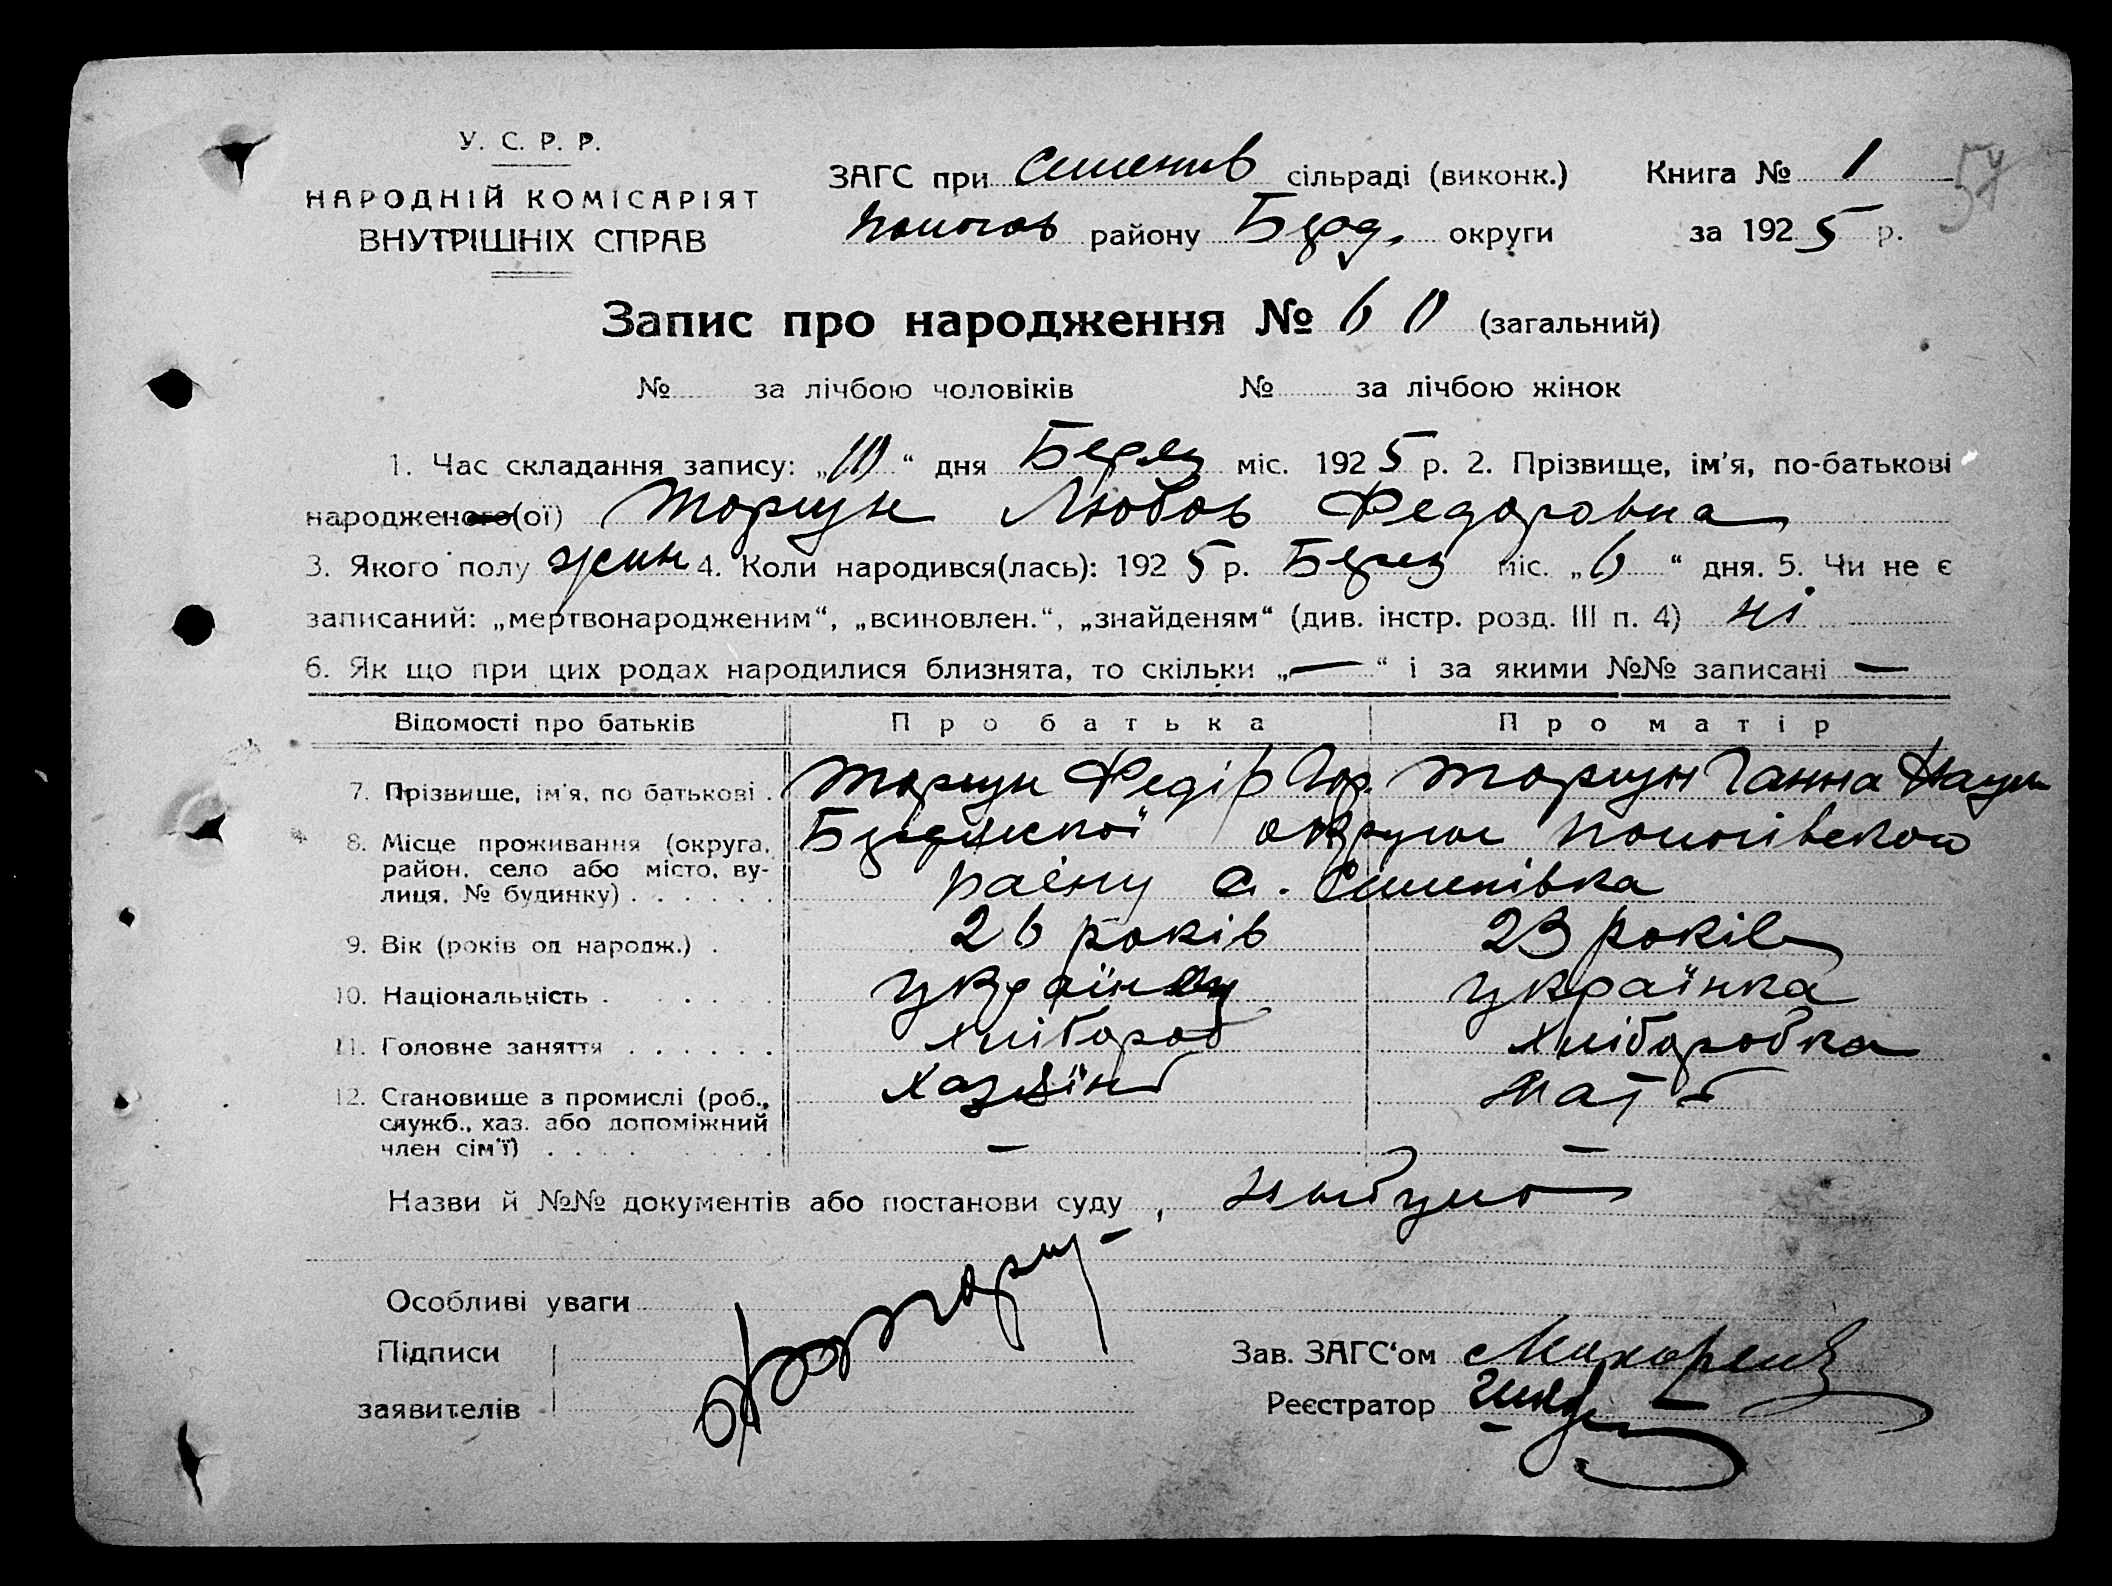 У. С. Р. Р.
НАРОДНІЙ КОМІСАРІЯТ
ВНУТРІШНІХ СПРАВ
ЗАГС при Семенів сільраді (виконк.)
Пологов району Берд. округи
Книга № 1
за 1925 р.
54
Запис про народження № 60 (загальний)
№ за лічбою чоловіків № за лічбою жінок
1. Час складання запису: „10“ дня Берез міс. 1925 р. 2. Прізвище, ім'я, по-батькові
народженого(ої) Торгун Любов Федоровна
3. Якого полу жин 4. Коли народився(лась): 1925 р. Берез міс. „6“ дня. 5. Чи не є
записаний: „мертвонародженим“, „всиновлен.“, „знайденям“ (див. інстр. розд. III п. 4) ні
6. Як що при цих родах народилися близнята, то скільки „—“ і за якими №№ записані —
Відомості про батьків Про батька Про матір
7. Прізвище, ім'я, по батькові . Торгун Федір Гор. Торгун Ганна Наум
8. Місце проживання (округа, район, село або місто, вулиця, № будинку) Бердянської округи Пологівского
раёну с. Семенівка
9. Вік (років од народж.) . 26 років 23 років
10. Національність . українец українка
11. Головне заняття . хлібороб хліборобка
12. Становище в промислі (роб., служб., хаз. або допоміжний член сім'ї) хазяїн мать
— —
Назви й №№ документів або постанови суду
Особливі уваги
Підписи
заявителів
Зав. ЗАГС'ом
Реєстратор